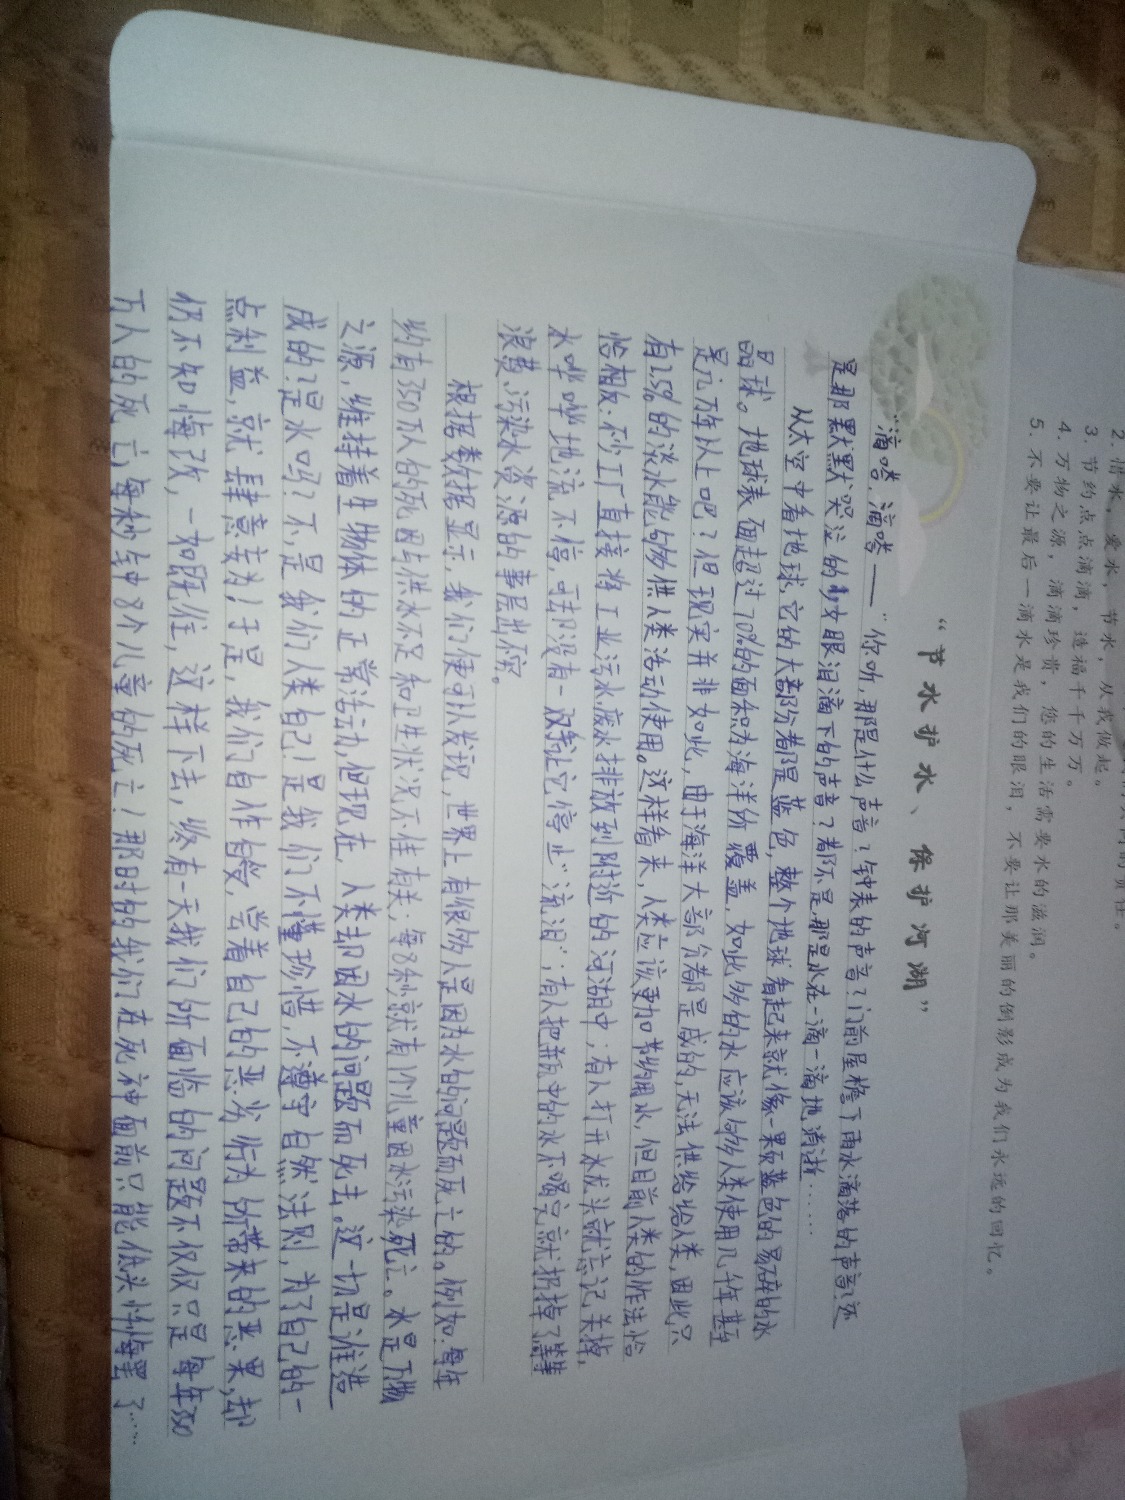 2. 惜水，爱水，节水，从我做起。
3. 节约点点滴滴，造福千千万万。
4. 万物之源，滴滴珍贵，您的生活需要水的滋润。
5. 不要让最后一滴水是我们的眼泪，不要让那美丽的倒影成为我们永远的回忆。
“节水护水、保护河湖”
“滴嗒，滴嗒——”你听，那是什么声音？钟表的声音？门前屋檐下雨水滴落的声音？还
是那默默哭泣的眼泪滴下的声音？都不是，那是水在一滴一滴地消逝……
从太空中看地球，它的大部份都是蓝色，整个地球看起来就像一颗蓝色的易碎的水
晶球。地球表面超过70%的面积为海洋所覆盖，如此多的水应该够人类使用几年甚至
是几万年以上吧？但现实并非如此，由于海洋大部分都是咸的，无法供给给人类，因此只
有2.5%的淡水能够供人类活动使用。这样看来，人类应该更加节约用水，但目前人类的作法恰
恰相反：不少工厂直接将工业污水、废水排放到附近的河湖中；有人打开水龙头就忘记关掉，
水哗哗地流不停，可却没有一双手让它停止“流泪”；有人把瓶中的水不喝完就扔掉了等等
浪费、污染水资源的事层出不穷。
根据数据显示，我们便可以发现，世界上有很多人是因为水的问题而死亡的。例如：每年
约有350万人的死因与供水不足和卫生状况不佳有关；每8秒就有1个儿童因水污染死亡。水是万物
之源，维持着生物体的正常活动，但现在，人类却因水的问题而死去。这一切是谁造
成的？是水吗？不，是我们人类自己！是我们不懂珍惜，不遵守自然法则，为了自己的一
点利益，就肆意妄为！于是，我们自作自受，尝着自己的恶劣行为所带来的恶果，却
仍不知悔改，一如既往，这样下去，终有一天我们所面临的问题不仅仅只是每年350
万人的死亡，每秒钟8个儿童的死亡！那时的我们在死神面前只能低头忏悔罢了……